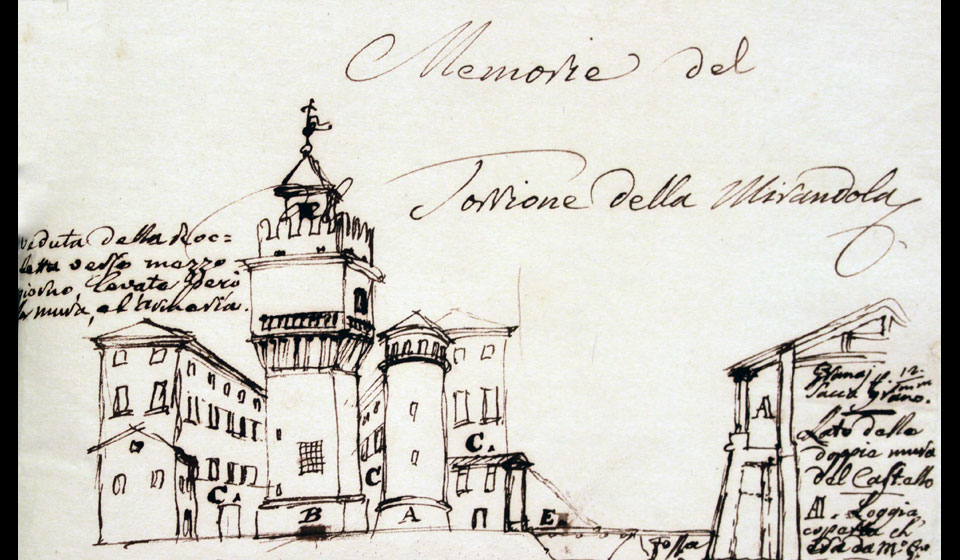 Memorie del
Torrione della Mirandola
veduta della Roc=
chetta verso mezzo
giorno, levata però
la mura, el'Armeria.
C.
C
C.
B
A
E.
fossa
A
12
Sacca grano.
Lato della
doppia mura
del Castello
A. Loggia
coperta ch'